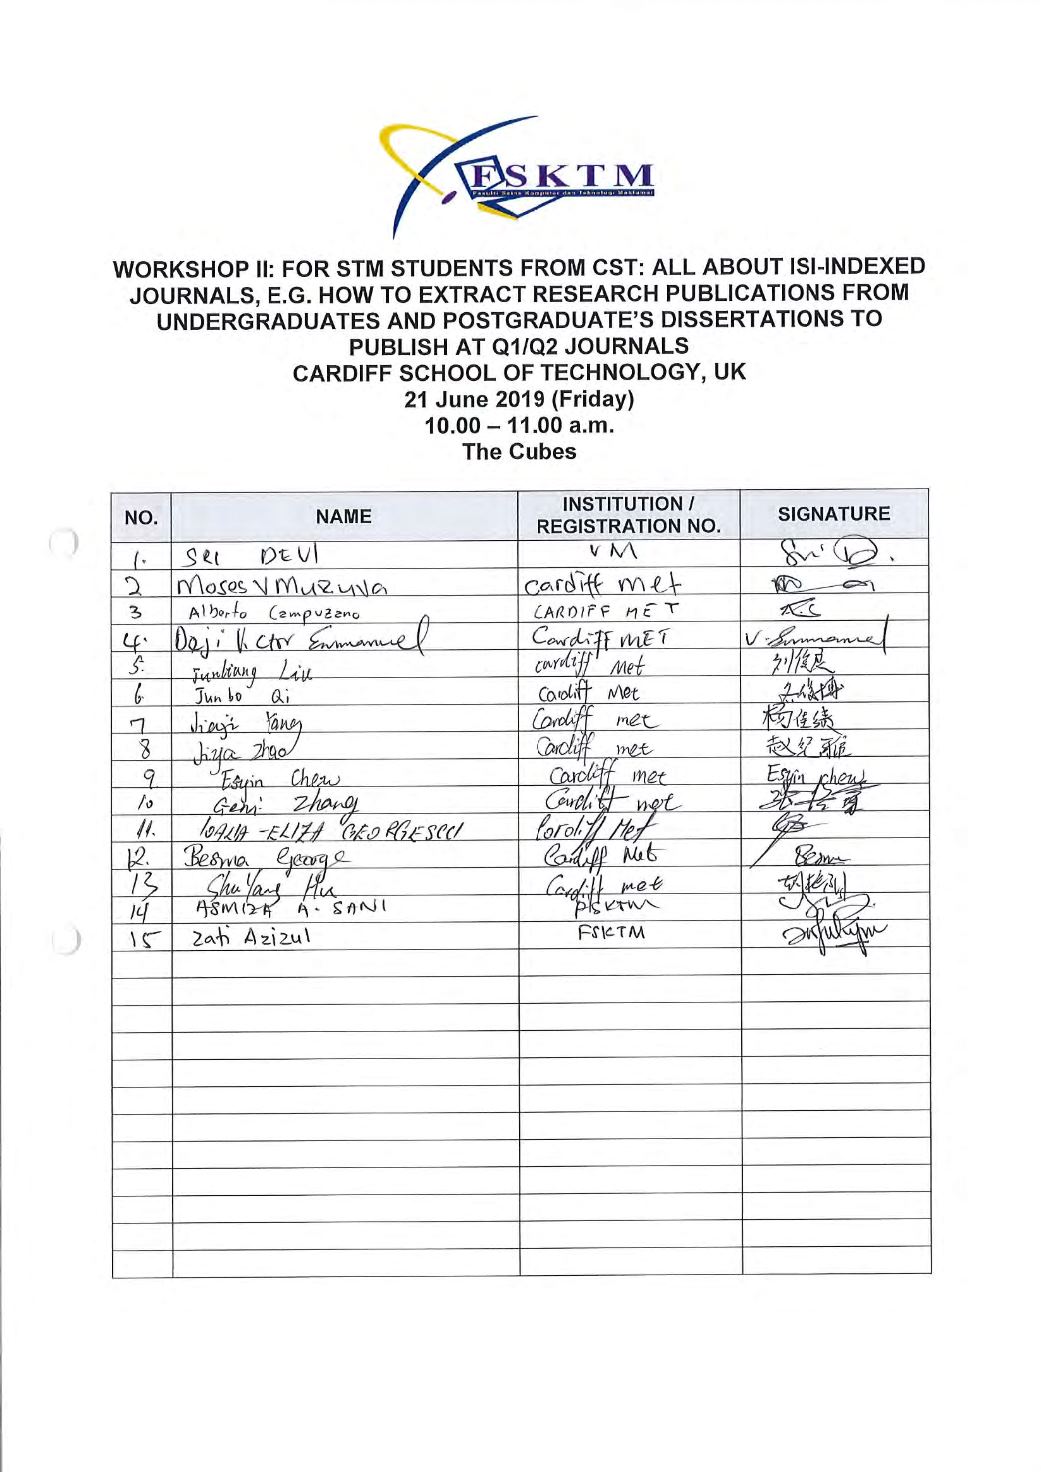 FSKTM
Fakulti Sains Komputer dan Teknologi Maklumat
WORKSHOP II: FOR STM STUDENTS FROM CST: ALL ABOUT ISI-INDEXED
JOURNALS, E.G. HOW TO EXTRACT RESEARCH PUBLICATIONS FROM
UNDERGRADUATES AND POSTGRADUATE'S DISSERTATIONS TO
PUBLISH AT Q1/Q2 JOURNALS
CARDIFF SCHOOL OF TECHNOLOGY, UK
21 June 2019 (Friday)
10.00 – 11.00 a.m.
The Cubes
NO. NAME INSTITUTION / REGISTRATION NO. SIGNATURE
1. SRI DEVI UM
2 Moses V Muzuva cardiff met
3 Alberto Campuzano CARDIFF MET A.C
4. Deji Victor Emmanuel Cardiff MET V. Emmanuel
5. Liu cardiff Met
6. Junbo Qi Cardiff Met
7 Yang Cardiff met
8 Jiya Zhao Cardiff met
9. Esyin Chew Cardiff met Esyin chew
10 Zhang Cardiff met
11. -ELIZA GEORGESCU Cardiff Met
12. Besma George Cardiff Met
13 Shuyang Hu Cardiff met
14 ASMIZA A. SANI FSKTM
15 Zati Azizul FSKTM